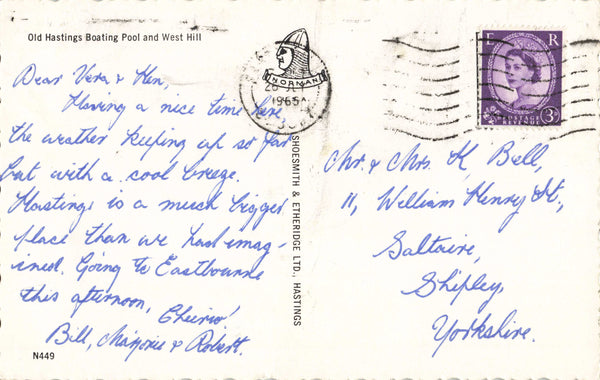 Old Hastings Boating Pool and West Hill
Dear Vera & Ken,
Having a nice time here
the weather keeping up so far
but with a cool breeze.
Hastings is a much bigger
place than we had imag-
ined. Going to Eastbourne
this afternoon,
Cheerio!
Bill, Marjorie & Robert.
N449
SHOESMITH & ETHERIDGE LTD., HASTINGS
NORMAN
1965
E R
POSTAGE
REVENUE
3D
Mr. & Mrs. K. Bell,
11, William Henry St.,
Saltaire,
Shipley,
Yorkshire.